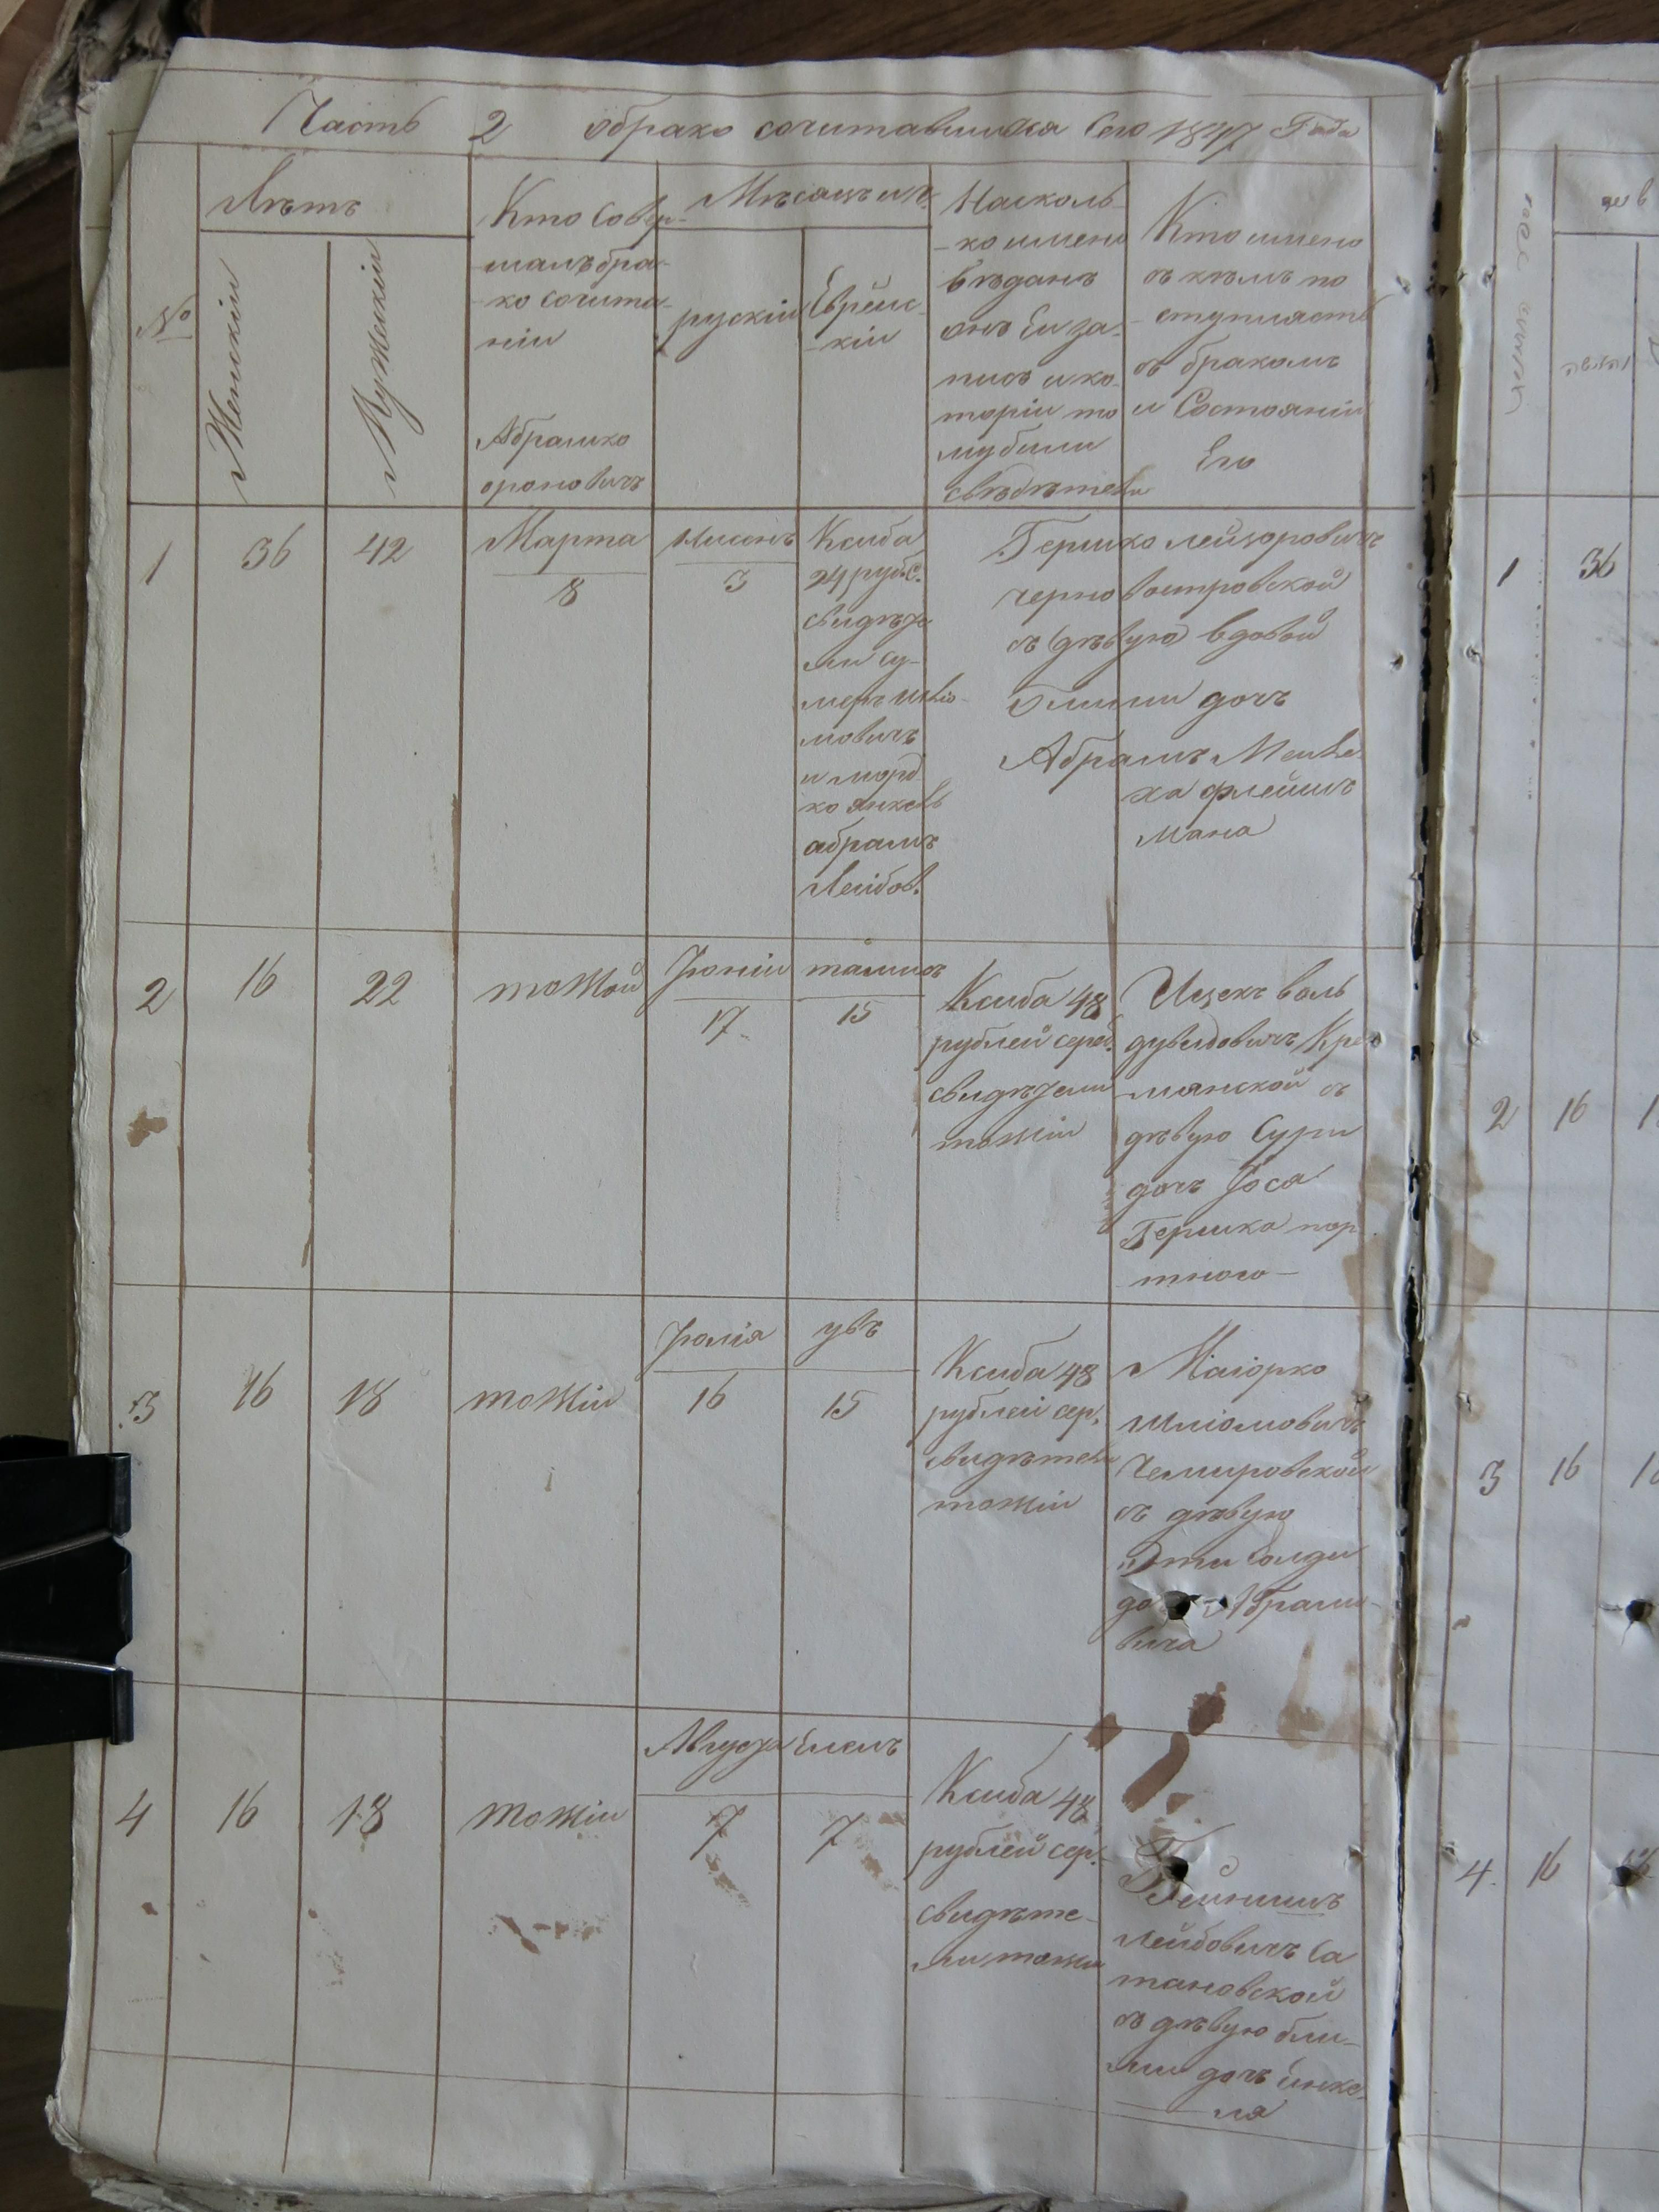 Часть 2 обрако сочитавшихся Сего 1847 Года
№
Лѣтъ
Женскіи
Мужескіи
Кто Совер-
-шалъ бра-
-ко сочита-
ніи
Абрамко
ороновичъ
Мѣсацъ и
рускіи
Еврейс-
-кіи
Насколь-
-ко имено
вѣданъ
онъ Ей за-
пись и ко-
торіи то
му били
свѣдѣтели
Кто имено
съ кѣмъ по
-ступиясть
съ бракомъ
и Состояніи
Его
1
36
42
Марта
8
Нисонъ
3
Ксиба
24 руб.С.
свидѣте
ли Су-
меръ шлio-
мовичъ
и морд
ко янкель
абрамъ
Лейбов.
Гершко лейзоровичъ
черно востровской
съ (дѣвую) вдовой
дочь
Абрамъ
ха флейшъ
мана
2
16
22
тожой
Іюніи
17
тамизъ
15
Ксиба 48
рублей сереб.
свидѣтели
тожіи
Ицекъ воль
дувидовичъ Кре
-мянской съ
дѣвую Сури
дочь Іося
Гершка пор
-тного-
3
16
18
тожіи
Іюлія
16
увъ
15
Ксиба 48
рублей сер.
свидѣтели
тожіи
Маіорко
шліомовичъ
Чемировской
съ дѣвую
Эти Голди
Абрамо-
вича
4
16
18
тожіи
Августа
7
Елелъ
7
Ксиба 48
рублей сер.
свидѣте-
-ли тожіи
лейбовичъ Са
тановской
съ дѣвую бли-
-ми дочъ Енке-
ля
1
36
2
16
3
16
4
16